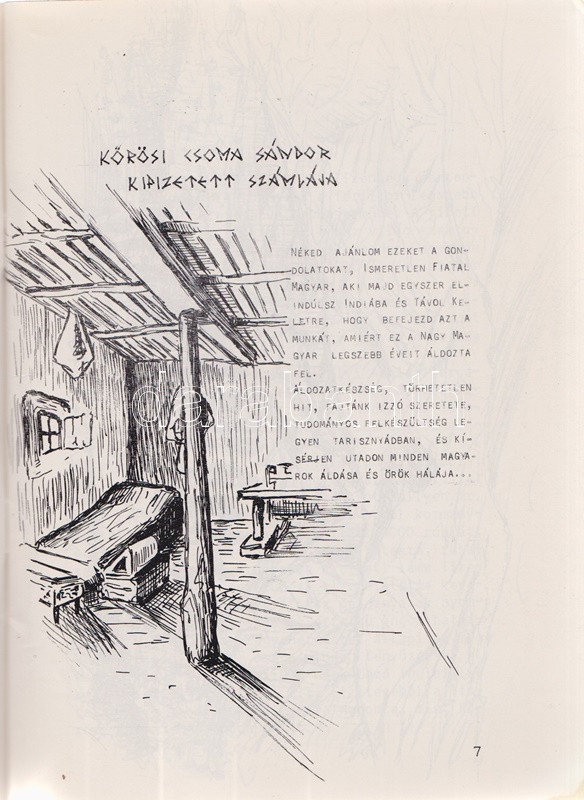 KŐRÖSI CSOMA SÁNDOR
KIFIZETETT SZÁMLÁJA
NÉKED AJÁNLOM EZEKET A GON-
DOLATOKAT, ISMERETLEN FIATAL
MAGYAR, AKI MAJD EGYSZER EL-
INDULSZ INDIÁBA ÉS TÁVOL KE-
LETRE, HOGY BEFEJEZD AZT A
MUNKÁT, AMIÉRT EZ A NAGY MA-
GYAR LEGSZEBB ÉVEIT ÁLDOZTA
FEL.
ÁLDOZATKÉSZSÉG, TÖRHETETLEN
HIT, FAJTÁNK IZZÓ SZERETETE,
TUDOMÁNYOS FELKÉSZÜLTSÉG LE-
GYEN TARISZNYÁDBAN, ÉS KÍ-
SÉRJEN UTADON MINDEN MAGYA-
ROK ÁLDÁSA ÉS ÖRÖK HÁLÁJA...
darabanth
7